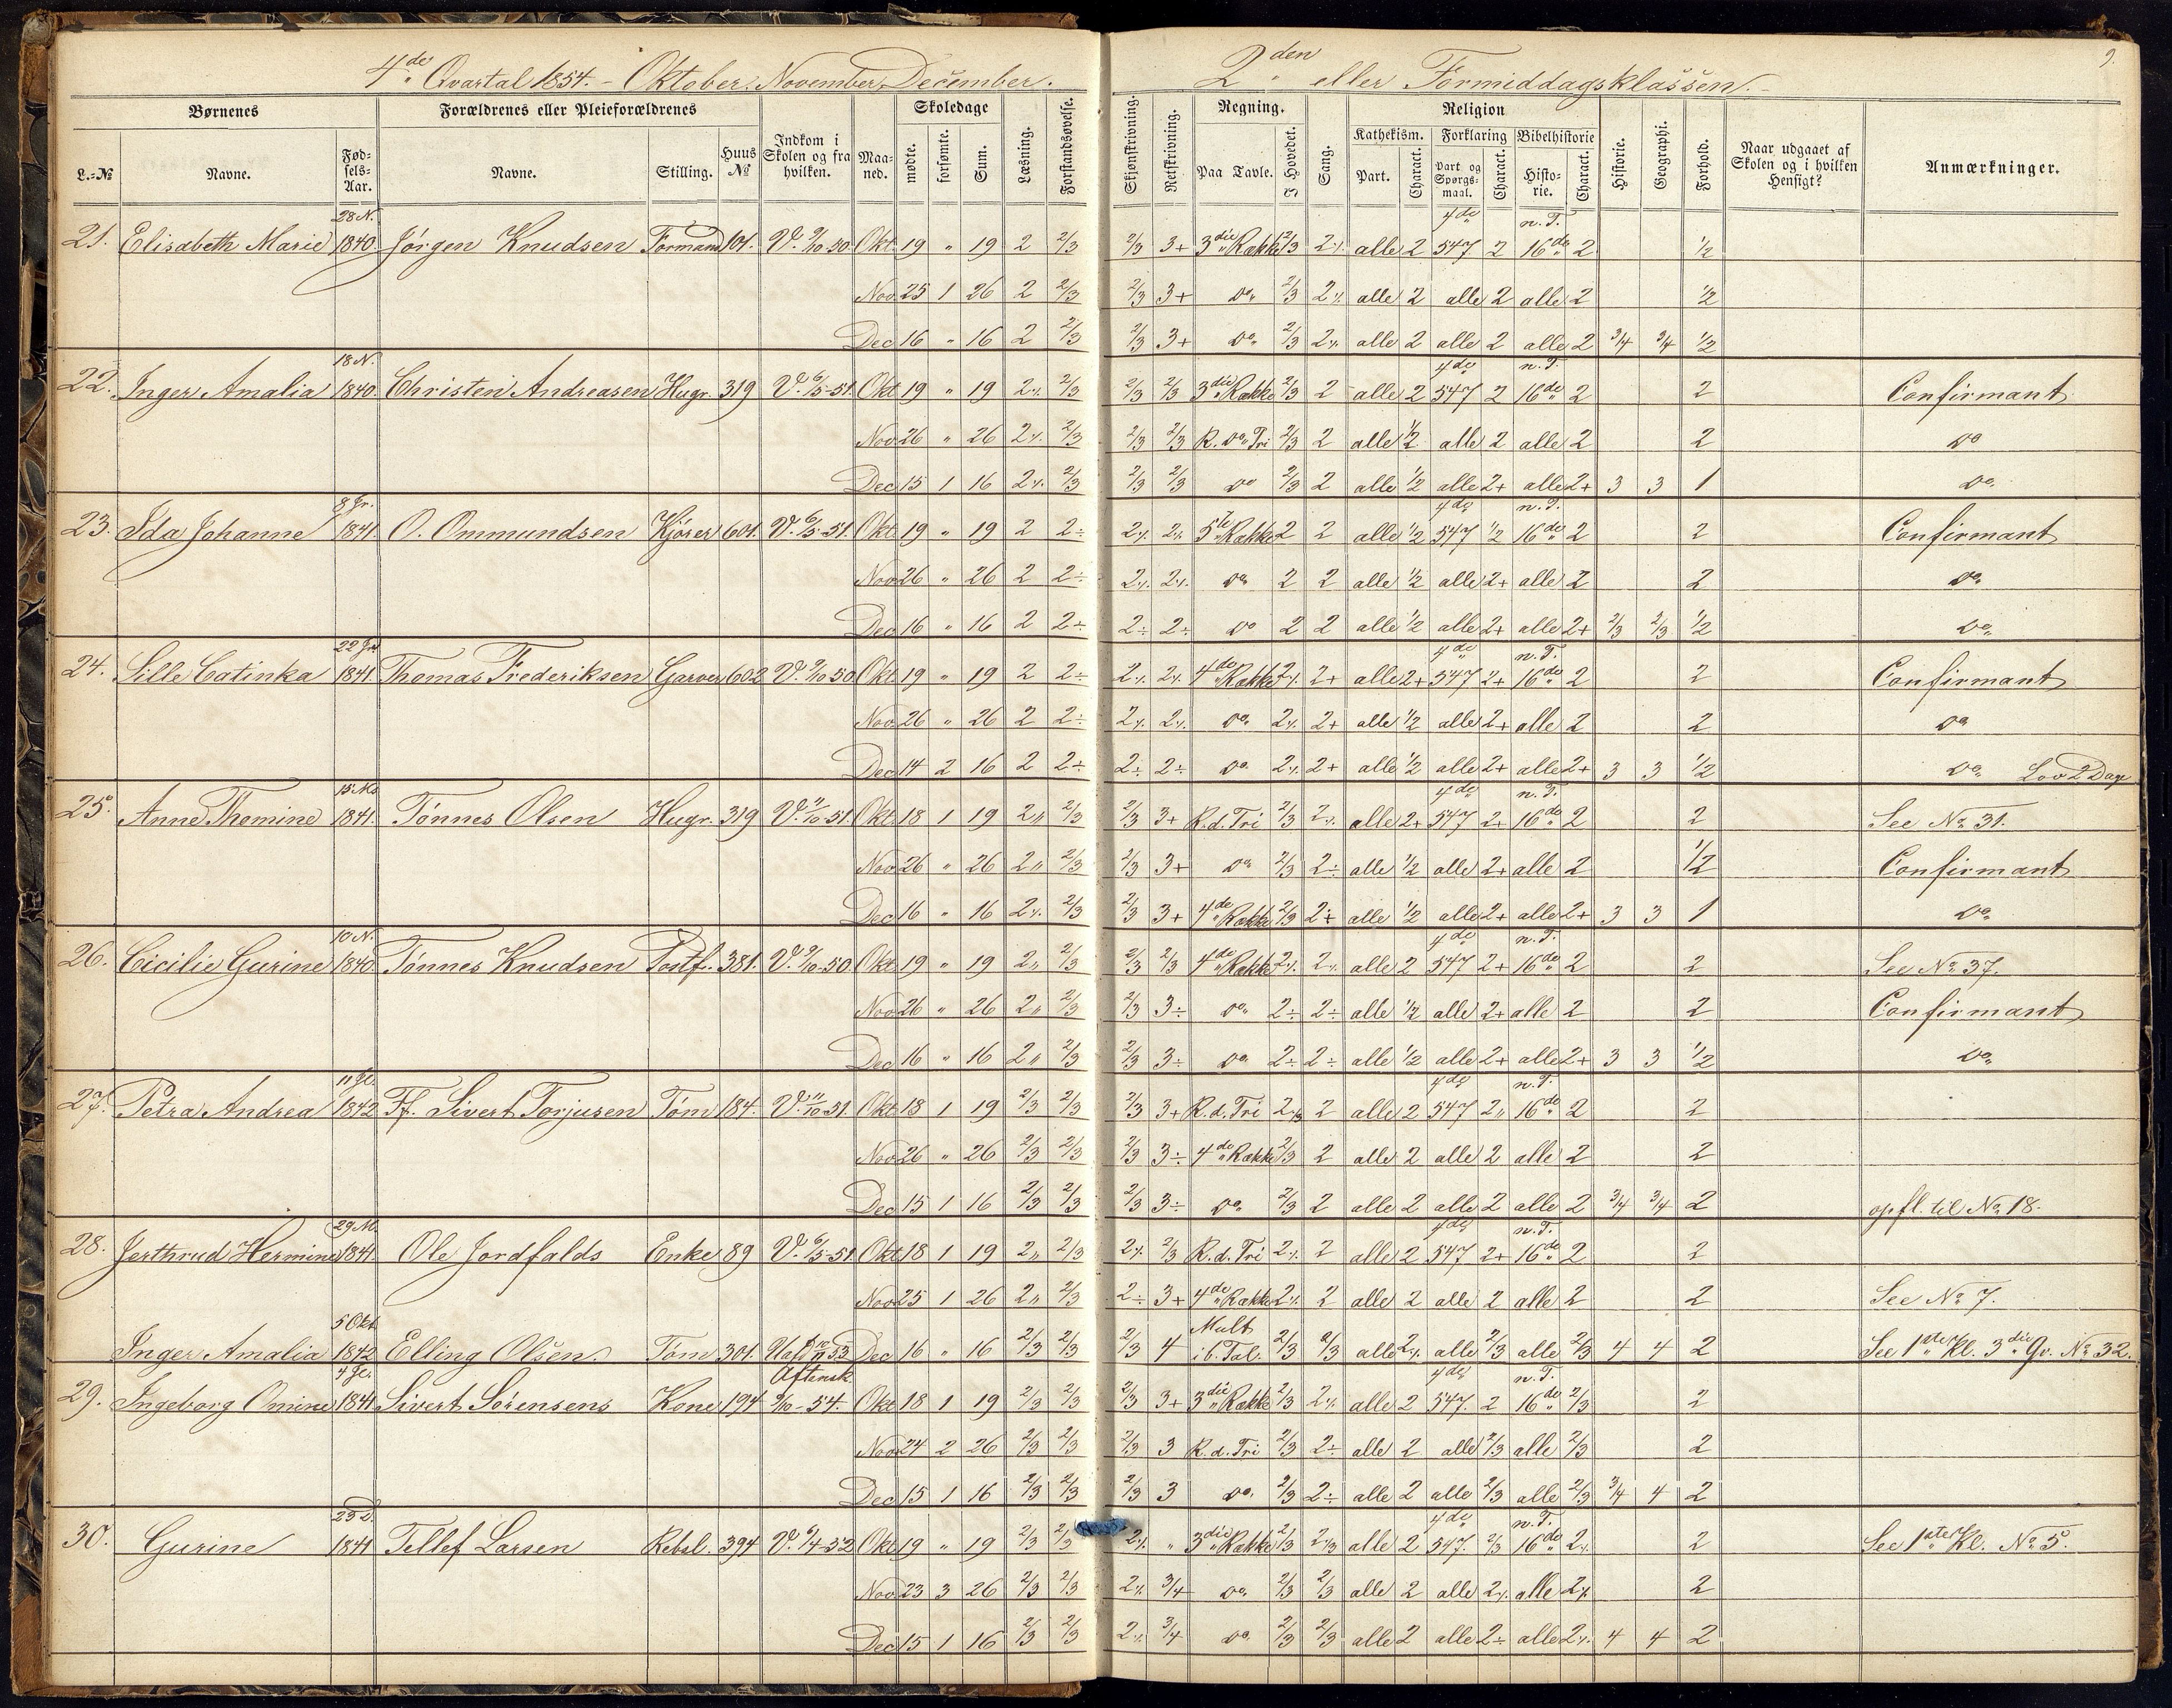 4de Qvartal 1854. - Oktober. November, December.
2den eller Formiddagsklassen.
9.
Børnenes
Forældrenes eller Pleieforældrenes
Indkom i Skolen og fra hvilken.
Maaned.
Skoledage
Læsning.
Forstandsøvelse.
Skjønskrivning.
Retskrivning.
Regning.
Sang.
Religion
Historie.
Geographi.
Forhold.
Naar udgaaet af Skolen og i hvilken Hensigt?
Anmærkninger.
L.-№ Navne. Fødsels-Aar. Navne. Stilling. Huus № mødte. forsømte. Sum.
Paa Tavle. I Hovedet. Kathekism. Forklaring Bibelhistorie
Part. Charact. Part og Spørgsmaal. Charact. Historie. Charact.
28 N. 4de n. T.
21. Elisabeth Marie 1840. Jørgen Knudsen Formand 101. V. 9/10-50 Okt 19 " 19 2 2/3 2/3 3+ 3die Række 2/3 2% alle 2 547 2 16de 2 1/2
Nov 25 1 26 2 2/3 2/3 3+ do 2/3 2% alle 2 alle 2 alle 2 1/2
Dec 16 " 16 2 2/3 2/3 3+ do 2/3 2% alle 2 alle 2 alle 2 3/4 3/4 1/2
18 N. 4de n. T.
22. Inger Amalia 1840. Christen Andreasen Hugr. 319 V. 6/5-51. Okt 19 " 19 2% 2/3 2/3 2/3 3die Række 2/3 2 alle 2 547 2 16de 2 2 Confirmant
Nov 26 " 26 2% 2/3 2/3 2/3 R. do Tri 2/3 2 alle 1/2 alle 2 alle 2 2 do
Dec 15 1 16 2% 2/3 2/3 2/3 do 2/3 2 alle 1/2 alle 2+ alle 2+ 3 3 1 do
8 Jr. 4de n. T.
23. Ida Johanne 1841. O. Ommundsen Kjører 601. V. 6/5-51. Okt. 19 " 19 2 2÷ 2% 2% 5te Række 2 2 alle 1/2 547 1/2 16de 2 2 Confirmant
Nov 26 " 26 2 2÷ 2% 2% do 2 2 alle 1/2 alle 2+ alle 2 2 do
Dec 16 " 16 2 2÷ 2÷ 2÷ do 2 2 alle 1/2 alle 2+ alle 2+ 2/3 2/3 1/2 do
22 Jr. 4de n. T.
24. Sille Catinka 1841 Thomas Frederiksen Garver 602 V. 9/10 50 Okt 19 " 19 2 2÷ 2% 2% 4de Række 2% 2+ alle 2+ 547 2+ 16de 2 2 Confirmant
Nov 26 " 26 2 2÷ 2% 2% do 2% 2+ alle 1/2 alle 2+ alle 2 2 do
Dec 14 2 16 2 2÷ 2÷ 2÷ do 2% 2+ alle 1/2 alle 2+ alle 2+ 3 3 1/2 do Lov 2 Dage
4de n. T.
25. Anne Thomine 1841. Tønnes Olsen Hugr. 319 V. 11/10 51. Okt 18 1 19 2" 2/3 2/3 3+ R.d. Tri 2/3 2% alle 2+ 547 2+ 16de 2 2 See No 31.
Nov 26 " 26 2" 2/3 2/3 3+ do 2/3 2÷ alle 1/2 alle 2+ alle 2 1/2 Confirmant
Dec 16 " 16 2% 2/3 2/3 3+ 4de Række 2/3 2÷ alle 1/2 alle 2+ alle 2+ 3 3 1 do
10 N. 4de n. T.
26. Cicilie Gurine 1840 Tønnes Knudsen Postf. 381. V. 9/10-50 Okt 19 " 19 2" 2/3 2/3 2/3 4de Række 2% 2% alle 2 547 2+ 16de 2 2 See No 37.
Nov 26 " 26 2" 2/3 2/3 3÷ do 2÷ 2÷ alle 1/2 alle 2+ alle 2 2 Confirmant
Dec 16 " 16 2" 2/3 2/3 3÷ do 2÷ 2÷ alle 1/2 alle 2+ alle 2+ 3 3 1/2 do
11 Jl. 4de n. T.
27. Petra Andrea 1842 Ff. Sivert Torjusen Tøm 184. V. 11/10-51. Okt 18 1 19 2/3 2/3 2/3 3+ R.d. Tri 2/3 2 alle 2 547 2" 16de 2 2
Nov 26 " 26 2/3 2/3 2/3 3÷ 4de Række 2/3 2 alle 2 alle 2 alle 2 2
Dec 15 1 16 2/3 2/3 2/3 3÷ do 2/3 2 alle 2 alle 2 alle 2 3/4 3/4 2 opfl. til No 18.
29 M. 4de n. T.
28. Jerthrud Hermine 1841. Ole Jordfalds Enke 89 V. 6/5-51. Okt 18 1 19 2" 2/3 2% 2/3 R.d. Tri 2% 2 alle 2 547 2+ 16de 2 2
Nov 25 1 26 2" 2/3 2÷ 3+ 4de Række 2% 2 alle 2 alle 2 alle 2 2 See No 7.
5 Okt Mult
Inger Amalia 1842 Elling Olsen. Tøm 301. Dec 16 " 16 2/3 2/3 2/3 4 i b. Tal. 2/3 2/3 alle 2% alle 2/3 alle 2/3 4 4 2 See 1ste Kl. 3die Qv. No 32.
4 Jl. Aftensk. 4de n. T.
29. Ingeborg Omine 1841 Sivert Sørensens Kone 194 9/10-54. Okt 18 1 19 2/3 2/3 2/3 3+ 3die Række 2/3 2% alle 2 547. 2 16de 2/3 2
Nov 24 2 26 2/3 2/3 2/3 3 R.d. Tri 2/3 2÷ alle 2 alle 2/3 alle 2/3 2
Dec 15 1 16 2/3 2/3 2/3 3 do 2/3 2÷ alle 2 alle 2/3 alle 2/3 3/4 4 2
23 D. 4de n. T.
30. Gurine 1841 Tellef Larsen Rebsl. 394 V. 6/4-52 Okt 19 " 19 2/3 2/3 2% " 3die Række 2/3 2/3 alle 2 547. 2/3 16de 2% 2 See 1ste Kl. No 5.
Nov 23 3 26 2/3 2/3 2% 3/4 do 2/3 2/3 alle 2 alle 2% alle 2% 2
Dec 15 1 16 2/3 2/3 2% 3/4 do 2/3 2/3 alle 2 alle 2÷ alle 2% 4 4 2